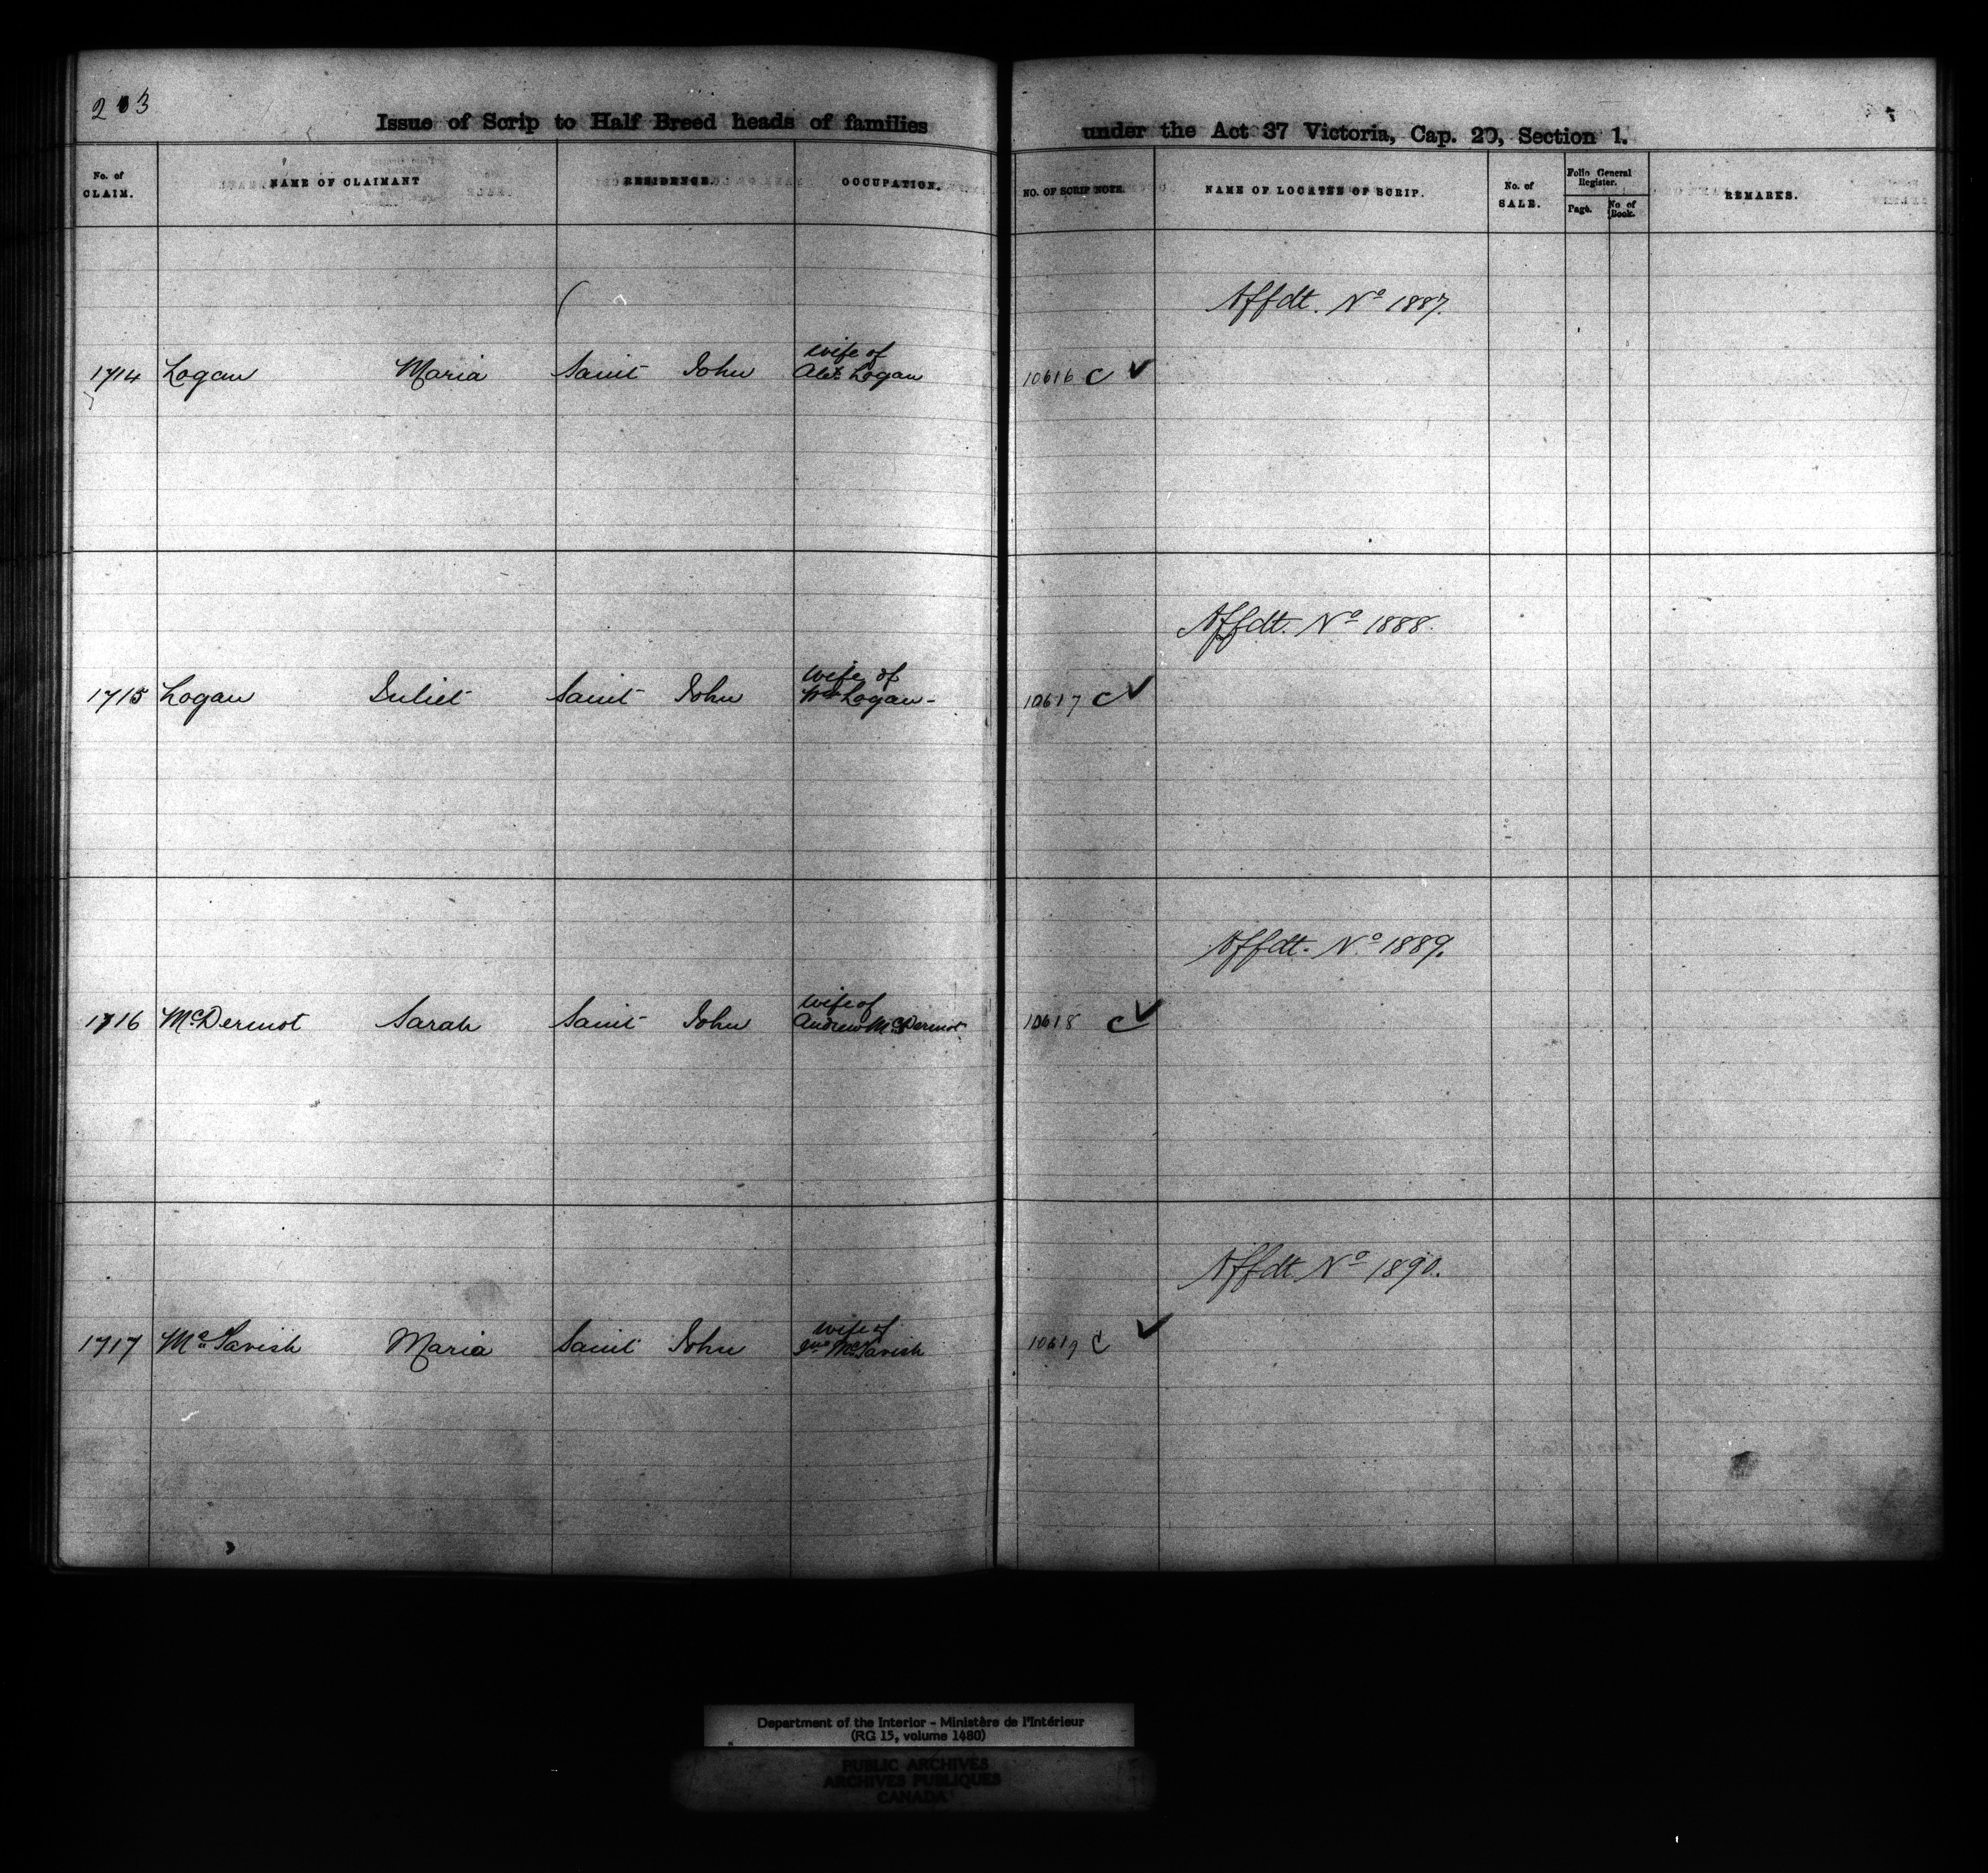 203
Issue of Scrip to Half Breed heads of families under the Act 37 Victoria, Cap. 20, Section 1.
No. of CLAIM. NAME OF CLAIMANT RESIDENCE. OCCUPATION. NO. OF SCRIP NOTE. NAME OF LOCATEE OF SCRIP. No. of SALE. Folio General Register. Page. No of Book. REMARKS.
Affdt. No 1887.
wife of
1714 Logan Maria Saint John Alex Logan 10616 C ✓
Affdt. No 1888.
wife of
1715 Logan Juliet Saint John Wm Logan - 10617 C ✓
Affdt. No 1889.
wife of
1716 McDermot Sarah Saint John Andrew McDermot 10618 C ✓
Affdt. No 1890.
wife of
1717 McTavish Maria Saint John Jno McTavish 10619 C ✓
Department of the Interior - Ministère de l'Intérieur
(RG 15, volume 1480)
PUBLIC ARCHIVES
ARCHIVES PUBLIQUES
CANADA